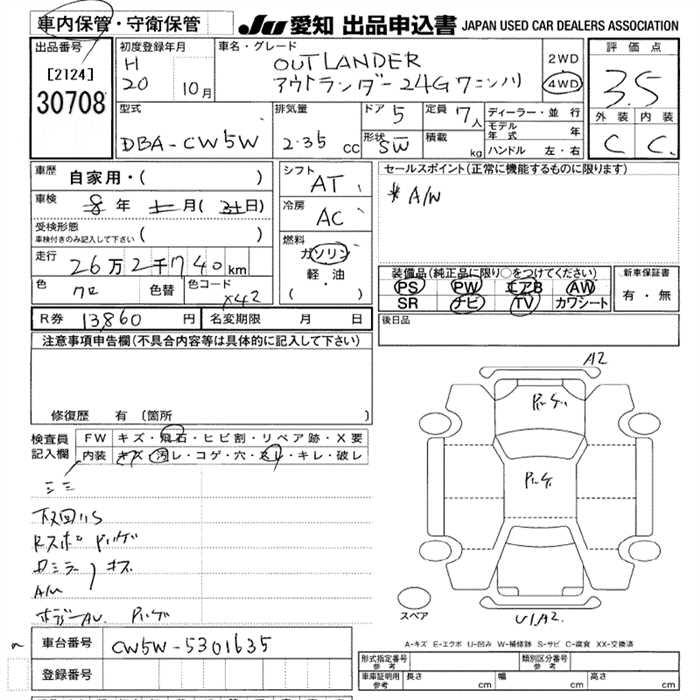 車内保管・守衛保管
JU 愛知 出品申込書 JAPAN USED CAR DEALERS ASSOCIATION
出品番号
[2124]
30708
初度登録年月
H
20 10月
車名・グレード
OUTLANDER
アウトランダー 24G ワゴン
2WD
4WD
評価点
3.5
外装 内装
C C
型式
DBA-CW5W
排気量
2.35 cc
ドア 5
形状 SW
定員 7人
積載 kg
ディーラー・並行
モデル年式 年
ハンドル 左・右
車歴 自家用・( )
車検 年 月( 日)
受検形態
車検付きのみ記入して下さい ( )
走行 26万2千740km
色 クロ 色替 色コード X42
シフト AT
冷房 AC
燃料
ガソリン
軽・油
( ・ )
セールスポイント(正常に機能するものに限ります)
* A/W
装備品(純正品に限り○をつけてください)
PS PW エアB AW
SR ナビ TV カワシート
新車保証書
有・無
R券 13860 円 名変期限 月 日
後日品
注意事項申告欄(不具合内容等は具体的に記入して下さい)
修復歴 有 (箇所 )
検査員
記入欄
FW キズ・飛石・ヒビ割・リペア跡・X要
内装 キズ・汚レ・コゲ・穴・スレ・キレ・破レ
Rスポ
カミラー キズ
A/W
A2
U1A2.
スペア
A-キズ E-エクボ U-凹み W-補修跡 S-サビ C-腐食 XX-交換済
車台番号 CW5W-5301635
登録番号
形式指定番号
参考
類別区分番号
参考
車庫証明用
参考
長さ cm 幅 cm 高さ cm